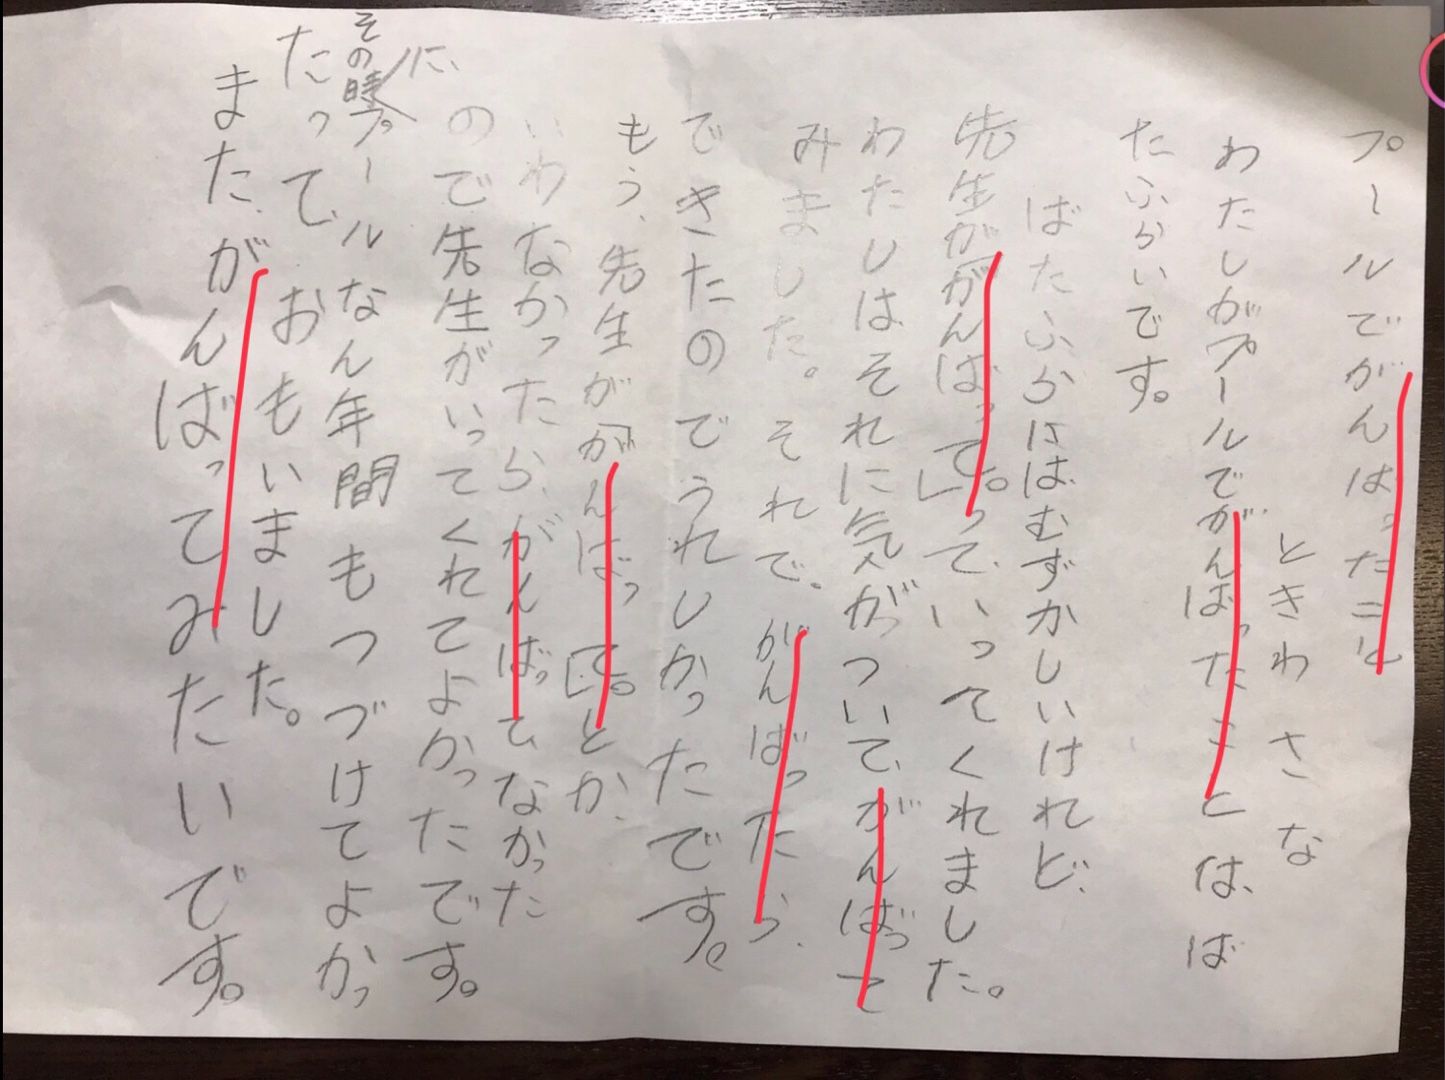 プールでがんばったこと
ときわ さな
わたしがプールでがんばったことは、ば
たふらいです。
ばたふらにはむずかしいけれど、
先生が「がんばって。」って、いってくれました。
わたしはそれに気がついて、がんばって
みました。それで、がんばったら、
できたのでうれしかったです。
もう、先生が「がんばって。」とか、
いわなかったら、がんばってなかった
ので先生がいってくれてよかったです。
その時に、プールなん年間もつづけてよかっ
たって、おもいました。
また、がんばってみたいです。